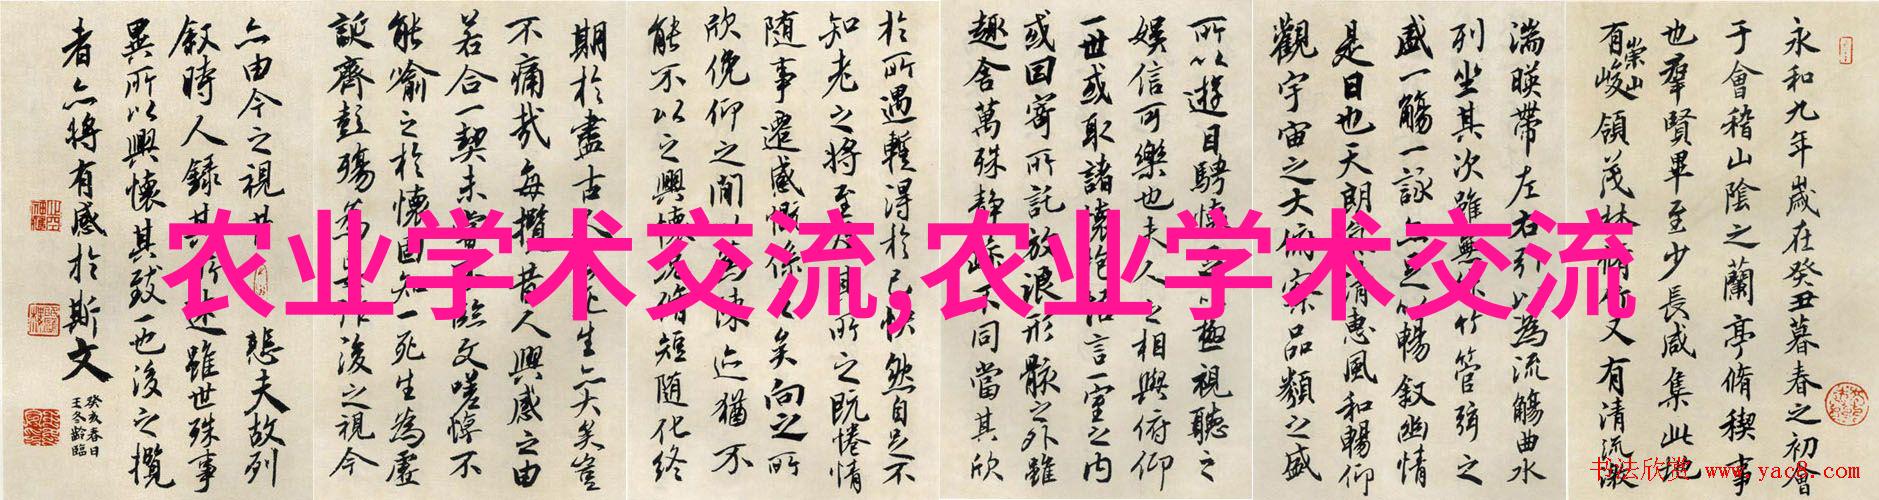 永和九年歲在癸丑暮春之初會
于會稽山陰之蘭亭脩稧事
也羣賢畢至少長咸集此地
有崇山峻領茂林脩竹又有清流激
湍暎帶左右引以為流觴曲水
列坐其次雖無竹管弦之
盛一觴一詠以暢叙幽情
是日也天朗清惠風和暢仰
觀宇宙之大俯察品類之盛
所以遊目騁懷極視聽之
娛信可樂也夫人之相與俯仰
一世或取諸懷抱悟言一室之內
或因寄所託放浪形骸之外雖
趣舍萬殊靜躁不同當其欣
於所遇蹔得於己快然自足不
知老之將至及其所之既惓情
随事遷感慨係之矣向之所
欣俛仰之閒以為陳迹猶不
能不以之興懷况脩短随化終
期於盡古人死生亦大矣豈
不痛哉每攬昔人興感之由
若合一契未嘗不臨文嗟悼不
能喻之於懷固知一死生為虛
誕齊彭殤為作後之視今
亦由今之視昔悲夫故列
叙時人錄其所述雖世殊事
異所以興懷其致一也後之攬
者亦將有感於斯文
癸亥春日
王冬齡臨
农业学术交流,农业学术交流
书法欣赏 www.yac8.com